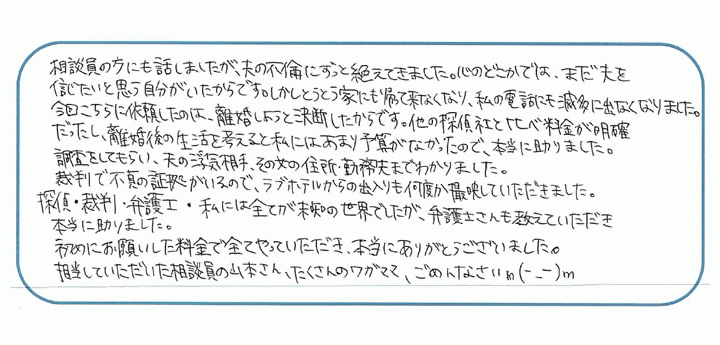 相談員の方にも話しましたが、夫の不倫にずっと絶えてきました。心のどこかでは、まだ夫を
信じたいと思う自分がいたからです。しかしとうとう家にも帰って来なくなり、私の電話にも滅多に出なくなりました。
今回こちらに依頼したのは、離婚しようと決断したからです。他の探偵社と比べ料金が明確
だったし、離婚後の生活を考えると私にはあまり予算がなかったので、本当に助りました。
調査をしてもらい、夫の浮気相手、その女の住所・勤務先までわかりました。
裁判で不貞の証拠がいるので、ラブホテルからの出入りも何度か撮映していただきました。
探偵・裁判・弁護士・私には全てが未知の世界でしたが、弁護士さんも教えていただき
本当に助りました。
初めにお願いした料金で全てやっていただき、本当にありがとうございました。
担当していただいた相談員の山本さん、たくさんのワガママ、ごめんなさいm(-_-)m